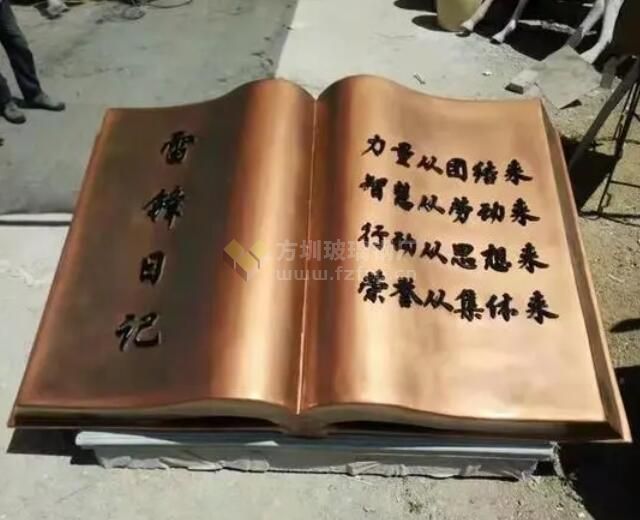 雷锋日记
力量从团结来
智慧从劳动来
行动从思想来
荣誉从集体来
方圳玻璃钢